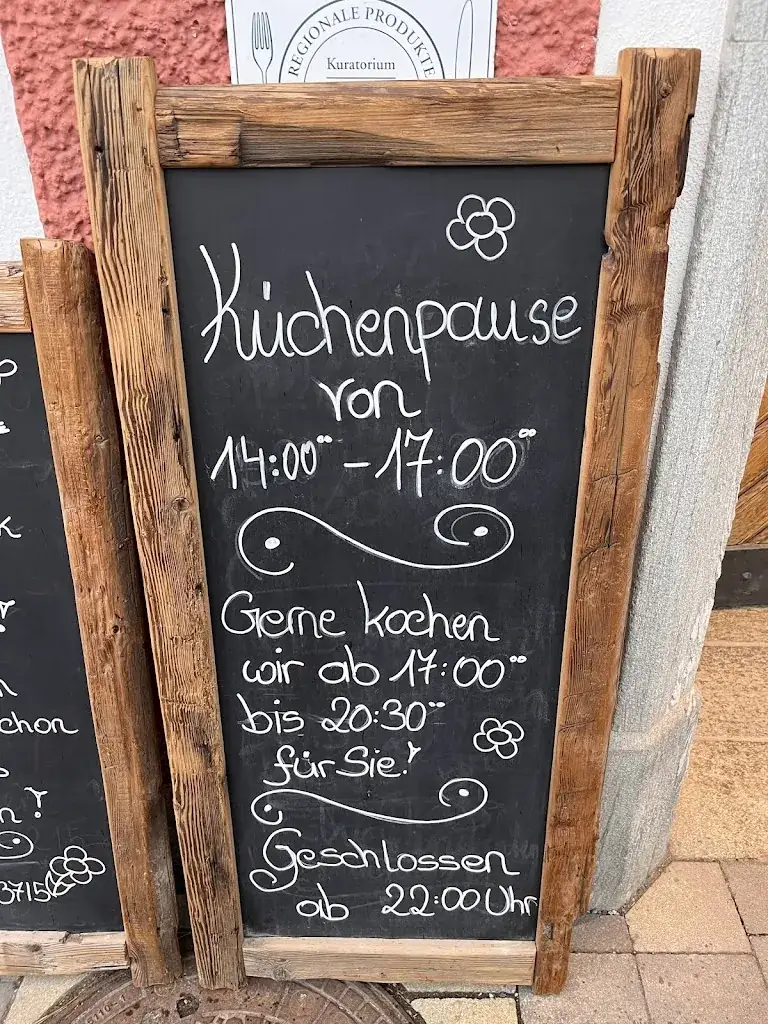 REGIONALE PRODUKTE
Kuratorium
Küchenpause
von
14:00°° - 17:00°°
Gerne kochen
wir ab 17:00°°
bis 20:30°°
für Sie!
Geschlossen
ab 22:00 Uhr
k
n
chon
n!
3715